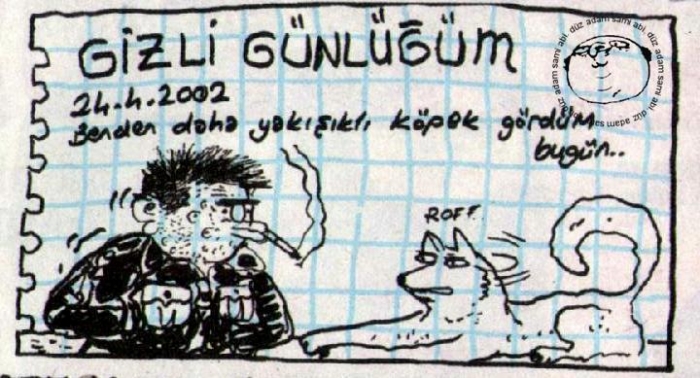 GİZLİ GÜNLÜĞÜM
24.4.2002
Benden daha yakışıklı köpek gördüm
bugün..
ROFF
düz adam sami abi düz adam sami abi düz adam sami abi